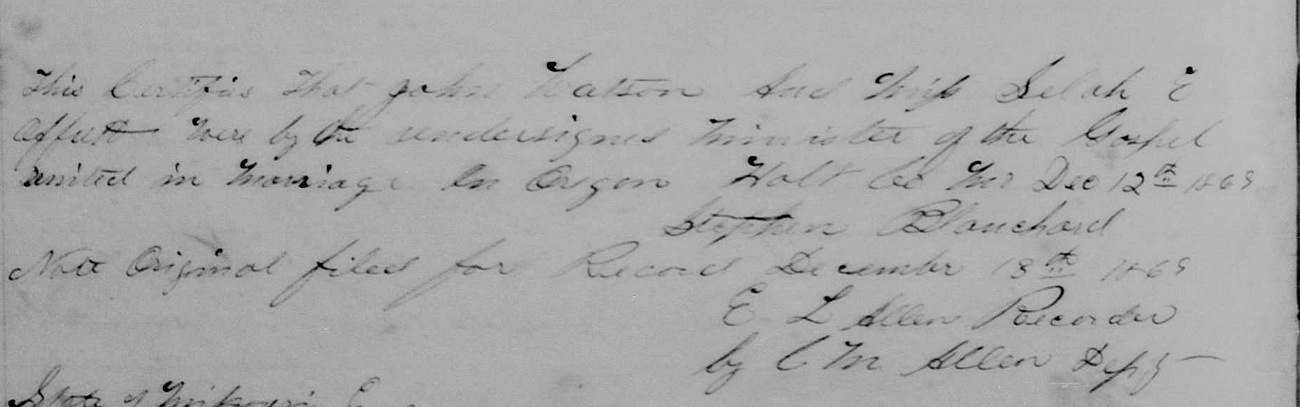 This Certifies That John Watson And Miss Selah E
Offutt were by the undersigned Minister of the Gospel
united in Marriage In Oregon Holt Co Mo Dec 12th 1869
Stephen Blanchard
Note Original filed for Record December 18th 1869
E L Allen Recorder
by C M Allen Depy
State of Missouri